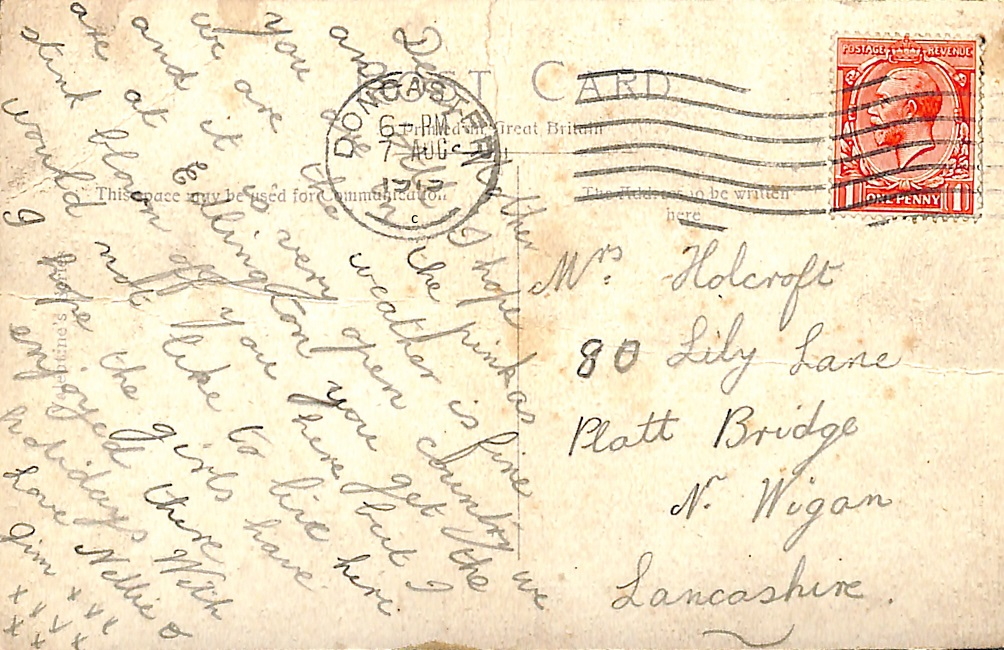 POST CARD
Printed in Great Britain
This space may be used for Communication
The Address to be written
here
POSTAGE REVENUE
1 ONE PENNY 1
DONCASTER
6 - PM
7 AUG
C
Dear Mother
and Dad I hope
you are in the pink as
we are the weather is fine
and it is very open country we
are at Edlington you get the
stink blown off you here but I
would not like to live here.
I hope the girls have
enjoyed there
holidays With
Love Nellie &
Jim x x x
x x x x
x x x
Mrs. Holcroft
80 Lily Lane
Platt Bridge
Nr. Wigan
Lancashire.